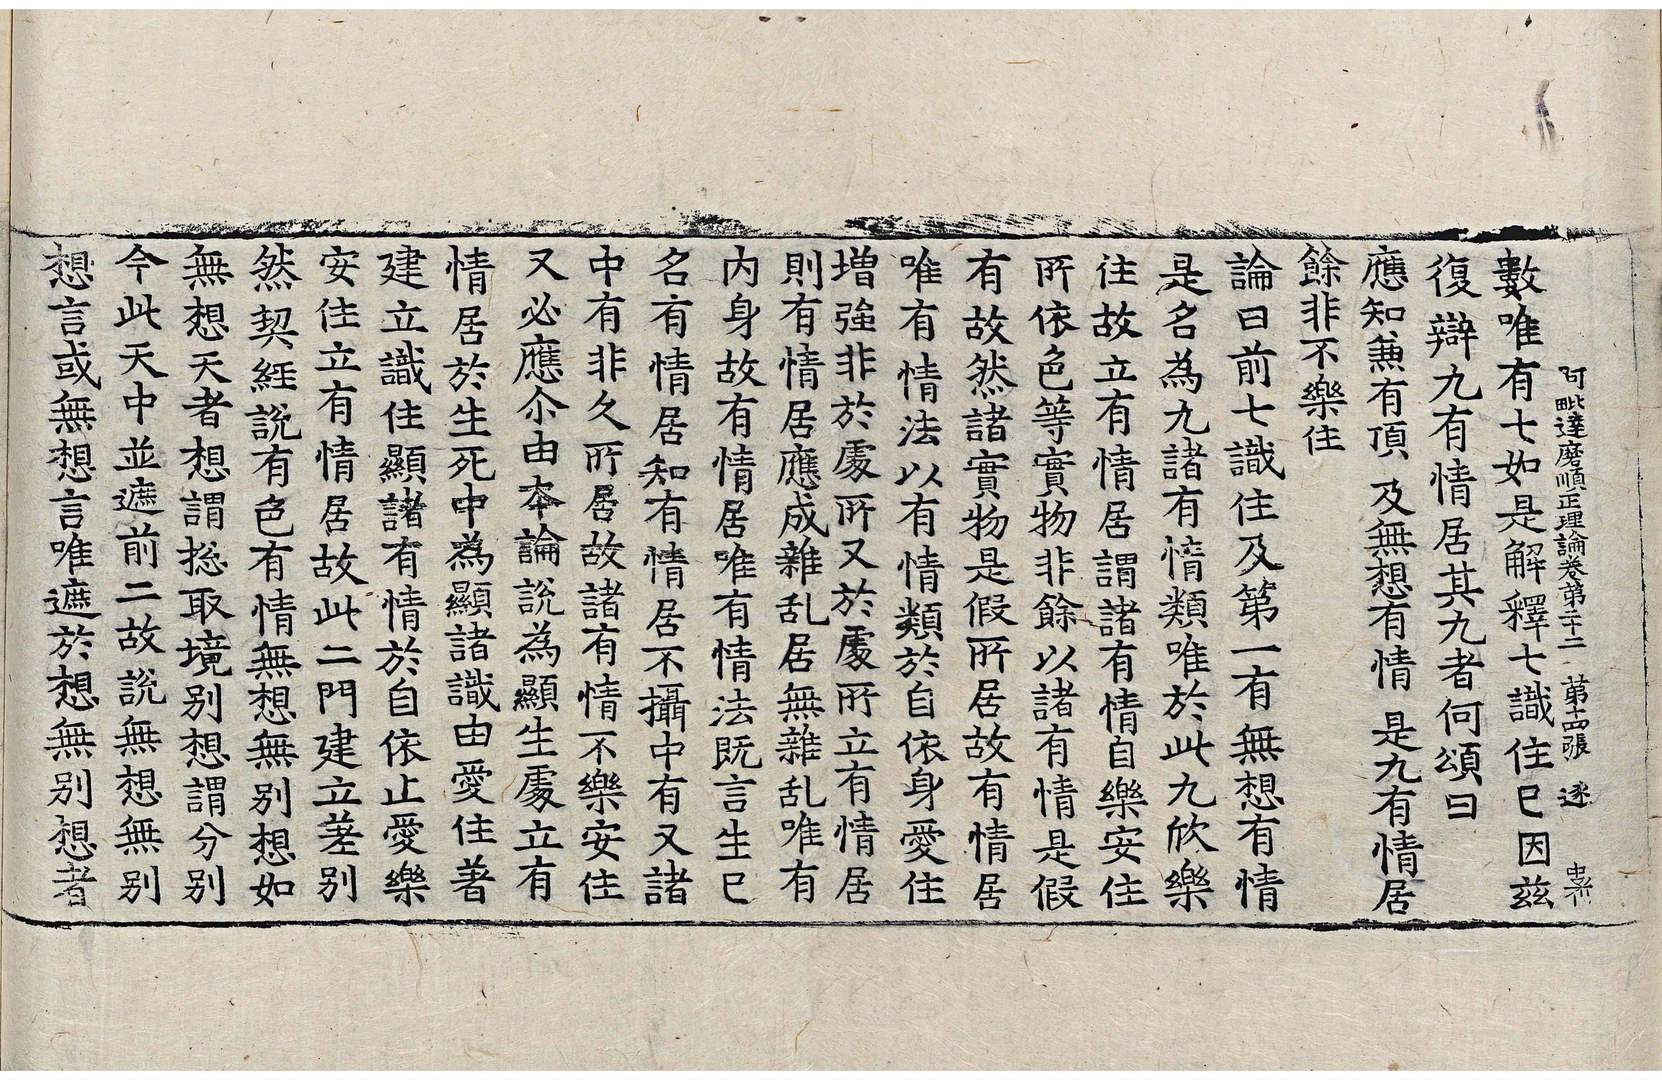 阿毗達磨順正理論卷第二十二 第十四張 逐
數唯有七如是解釋七識住已因茲
復辯九有情居其九者何頌曰
應知兼有頂 及無想有情 是九有情居
餘非不樂住
論曰前七識住及第一有無想有情
是名為九諸有情類唯於此九欣樂
住故立有情居謂諸有情自樂安住
所依色等實物非餘以諸有情是假
有故然諸實物是假所居故有情居
唯有情法以有情類於自依身愛住
增強非於處所又於處所立有情居
則有情居應成雜乱居無雜乱唯有
內身故有情居唯有情法既言生已
名有情居知有情居不攝中有又諸
中有非久所居故諸有情不樂安住
又必應尒由本論說為顯生處立有
情居於生死中為顯諸識由愛住著
建立識住顯諸有情於自依止愛樂
安住立有情居故此二門建立差別
然契經說有色有情無想無別想如
無想天者想謂捴取境別想謂分別
今此天中並遮前二故說無想無別
想言或無想言唯遮於想無別想者